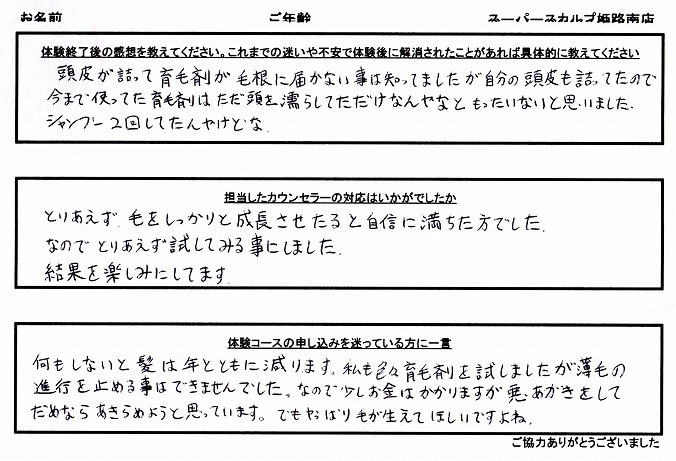 お名前 ご年齢 スーパースカルプ姫路南店
体験終了後の感想を教えてください。これまでの迷いや不安で体験後に解消されたことがあれば具体的に教えてください
頭皮が詰って育毛剤が毛根に届かない事は知ってましたが自分の頭皮も詰ってたので
今まで使ってた育毛剤はただ頭を濡らしてただけなんやなともったいないと思いました.
シャンプー2回してたんやけどな.
担当したカウンセラーの対応はいかがでしたか
とりあえず.毛をしっかりと成長させたると自信に満ちた方でした.
なのでとりあえず試してみる事にしました.
結果を楽しみにしてます.
体験コースの申し込みを迷っている方に一言
何もしないと髪は年とともに減ります。私も色々育毛剤を試しましたが薄毛の
進行を止める事はできませんでした。なので少しお金はかかりますが悪あがきをして
だめならあきらめようと思っています。でもやっぱり毛が生えてほしいですよね.
ご協力ありがとうございました